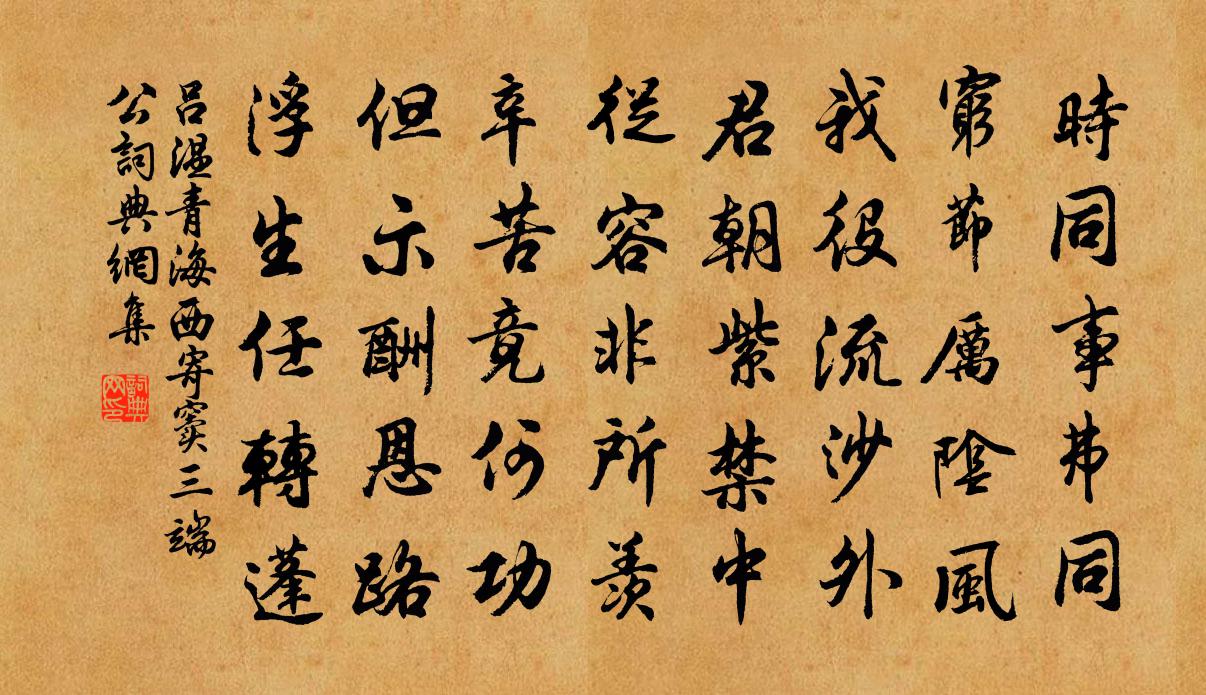 時同事弗同
窮節厲陰風
我役流沙外
君朝紫禁中
從容非所羨
辛苦竟何功
但示酬恩路
浮生任轉蓬
呂溫青海西寄竇三端
公詞典網集
詞典网印